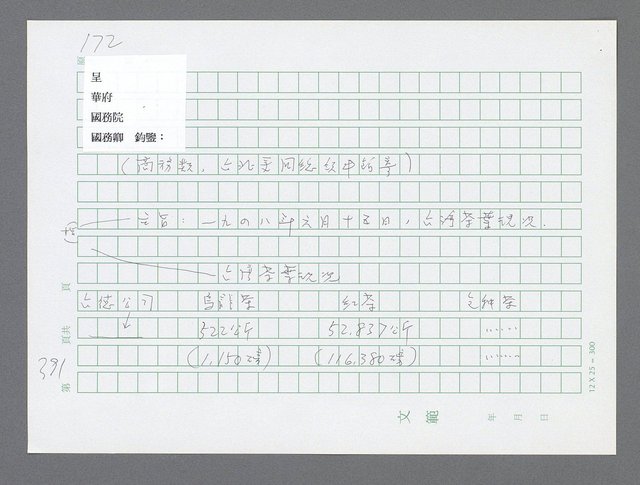 172
呈
華府
國務院
國務卿 鈞鑒：
（商務類，台北美國總領事館寄）
主旨：一九四八年六月十五日，台灣茶葉現況.
台灣茶葉現況
台德公司 烏龍茶 紅茶 包種茶
322公斤 52.837公斤 ......
(1,150磅) (116.380磅) ......
391
原
頁
頁共
第
文範
年 月 日
12 X 25 = 300